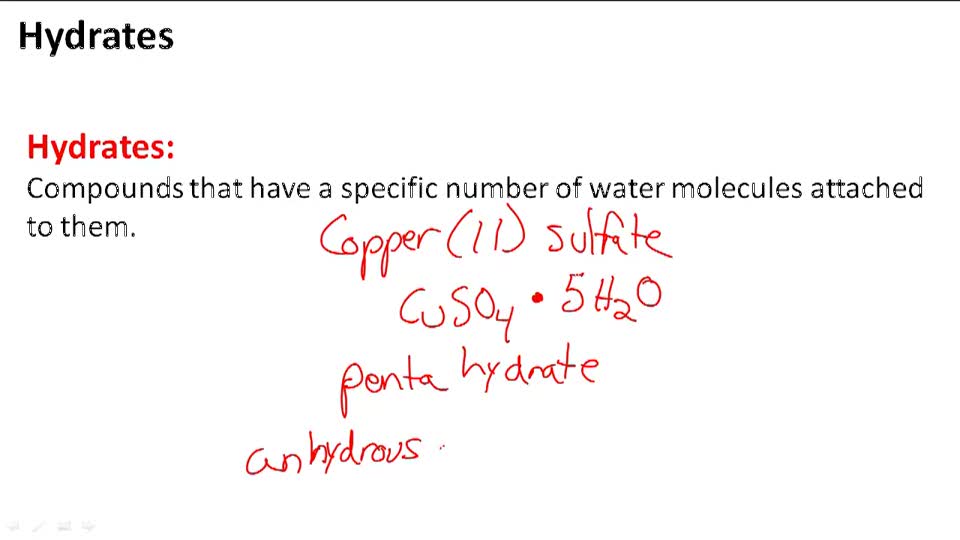 Hydrates
Hydrates:
Compounds that have a specific number of water molecules attached
to them.
Copper (II) sulfate
CuSO₄ • 5H₂O
penta hydrate
anhydrous